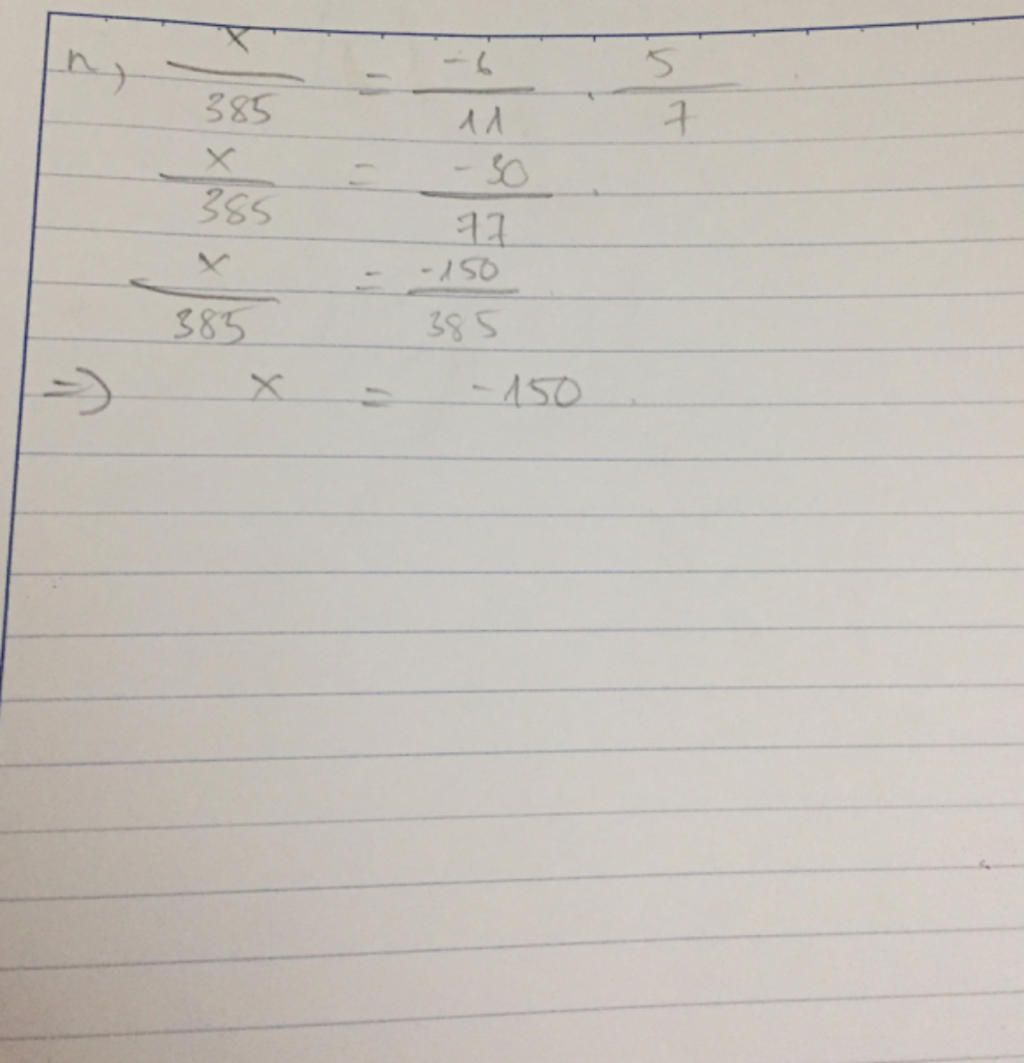 n, x/385 = -6/11 . 5/7
x/385 = -30/77 .
x/385 = -150/385
=> x = -150 .